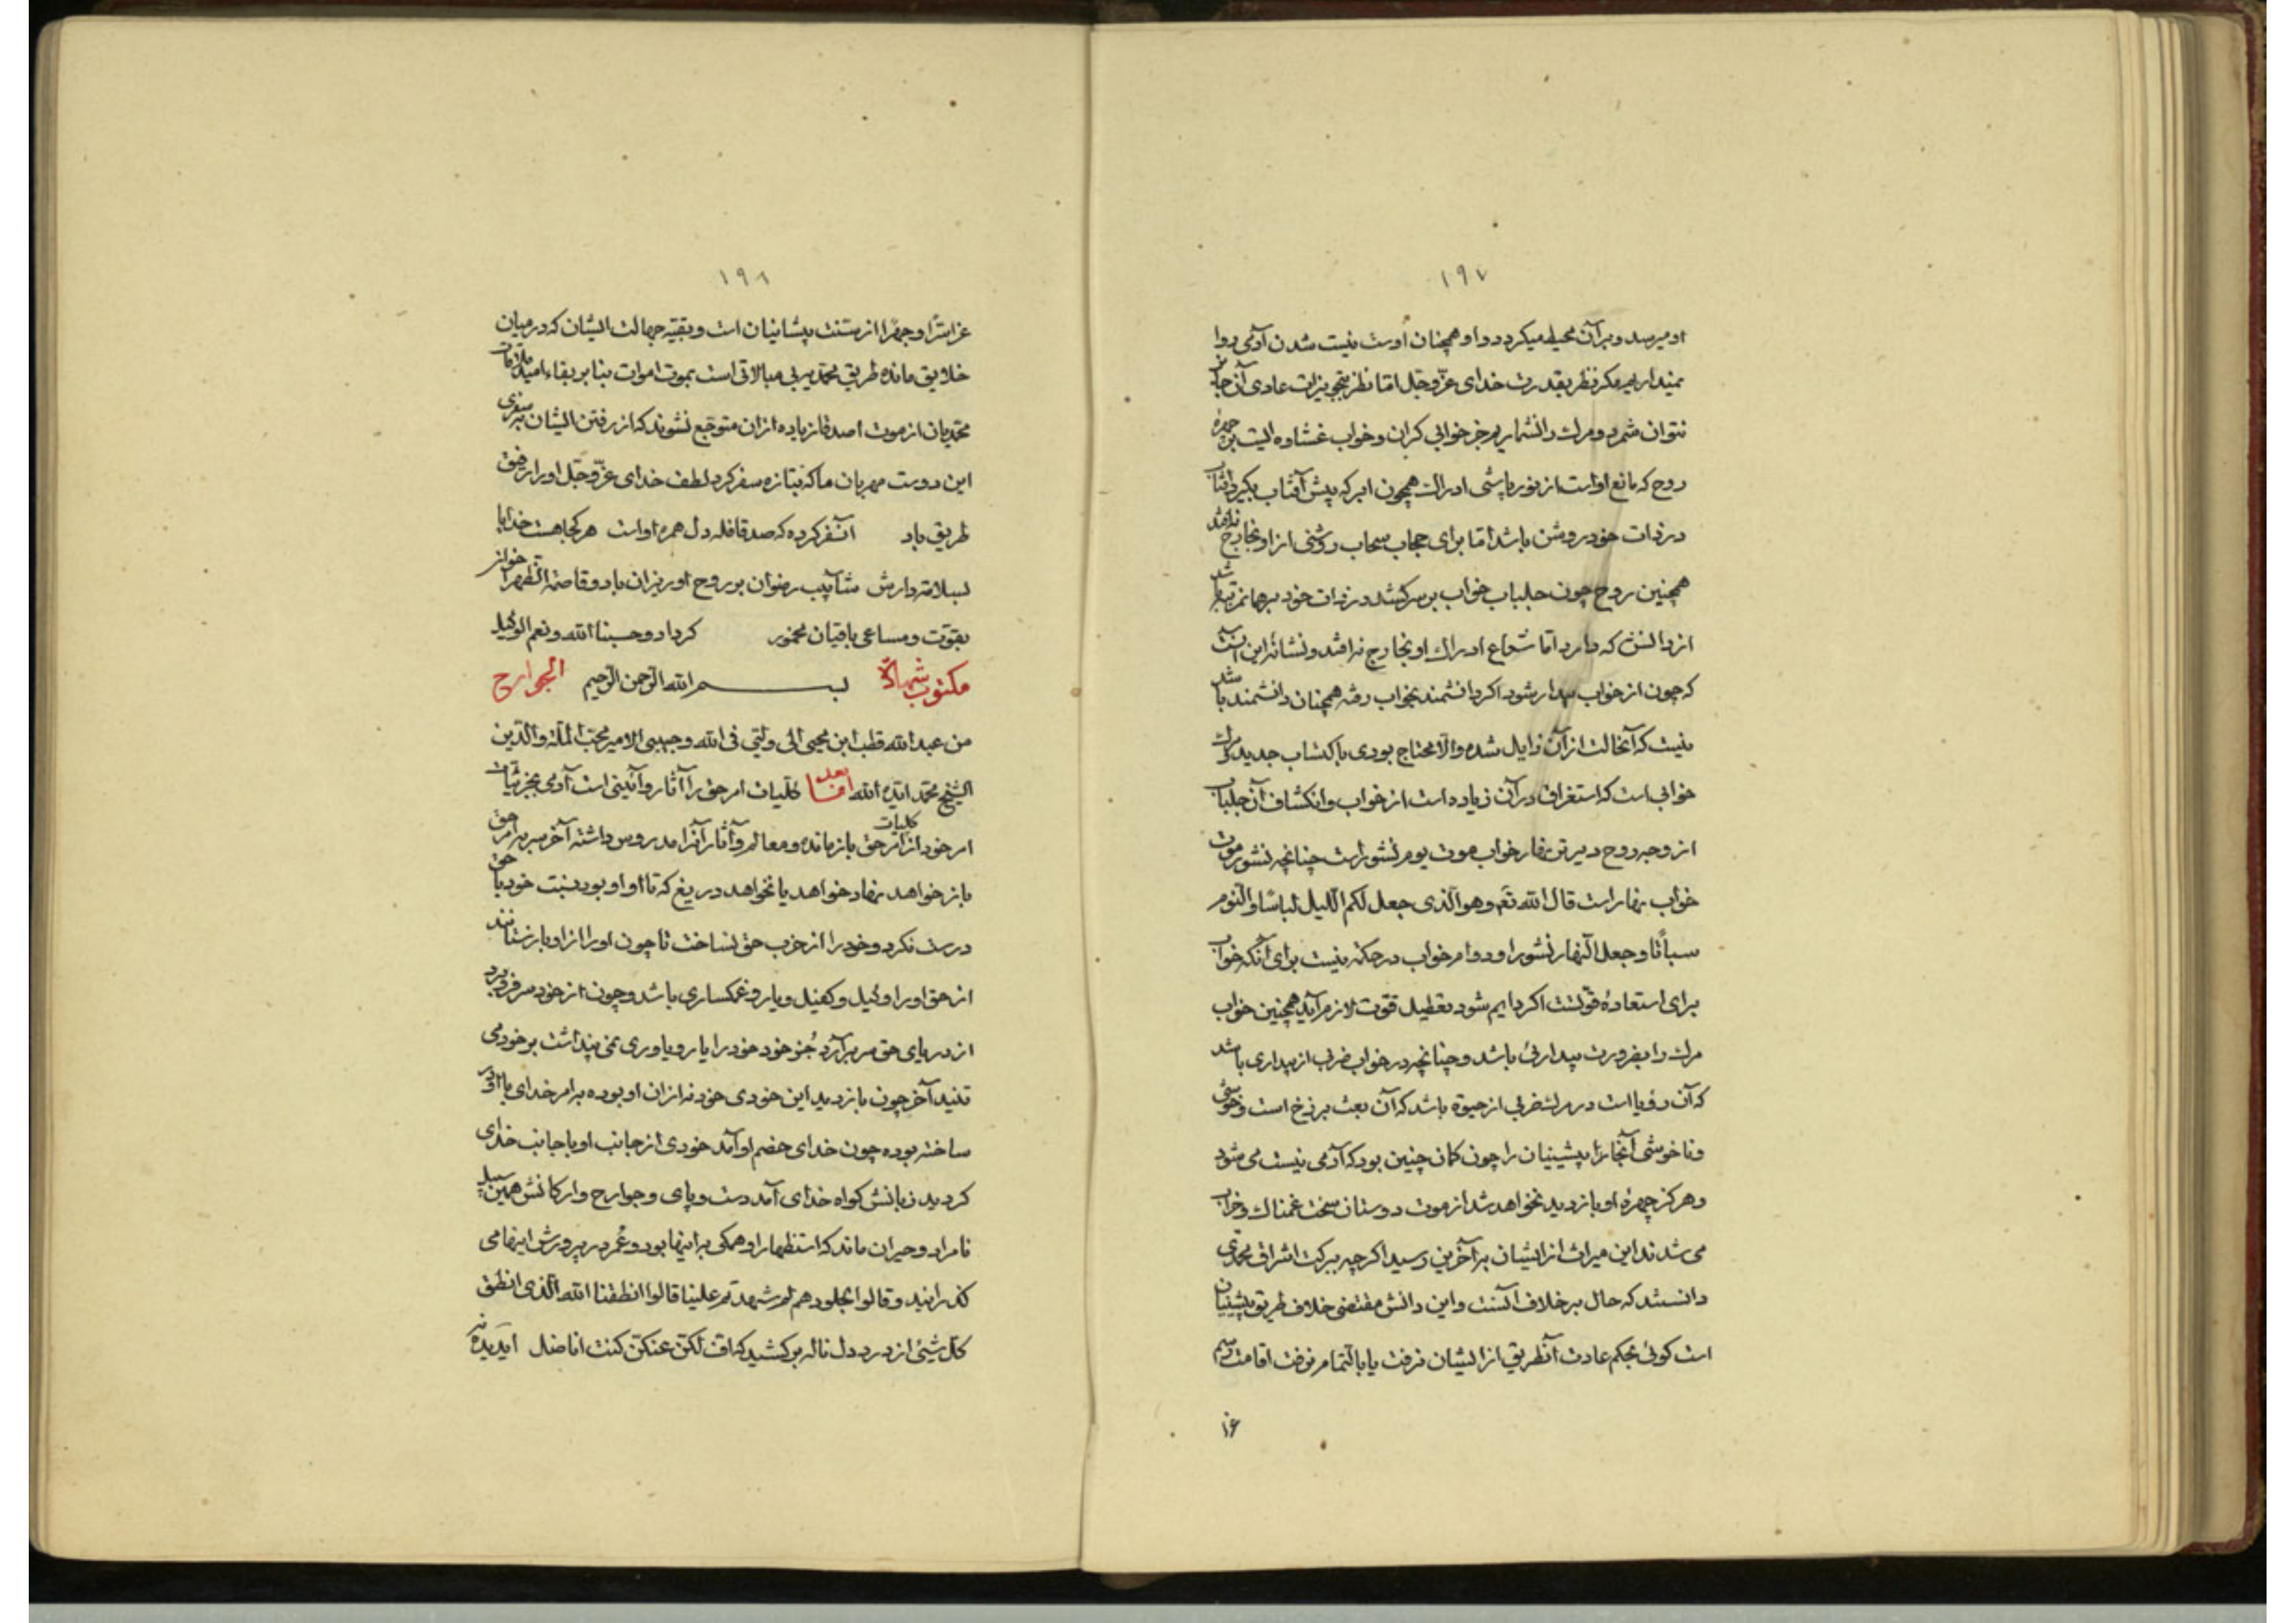 ١٩٧
او میرسد و بر آن محیط میکردد و او همچنان اوست نیست شدن آدمی روا
نمیداریم مکر نظر بقدرت خدای عزّ و جلّ امّا نظر بتجویزات عادی آن جایز
نتوان شمرد و مرك را نشماریم جز خوابی کران و خواب غشاوه ایست بر چهرهٔ
روح که مانع اواست از نور پاشی ادراك همچون ابر که پیش آفتاب بکیرد آفتاب
در ذات خود روشن باشد امّا برای حجاب سحاب روشنی از او بخارج نیفتد
همچنین روح چون جلباب خواب بر سر کشد در ذات خود بر همان مرتبه باشد
از دانش که دارد امّا شعاع ادراك او بخارج نیافتد و نشانهٔ این آنست
که چون از خواب بیدار شود اکر دانشمند بخواب رفته همچنان دانشمند باشد
نیست که آنحالت از آن زایل شده والّا محتاج بودی باکتساب جدید مرك
خوابی است که استغراق در آن زیاده است از خواب و انکشاف آن جلباب
از وجه روح دیرتر نهار خواب موت یوم نشور است چنانچه نشور موت
خواب نهار است قال الله تعَ وهو الّذی جعل لکم اللّیل لباسًا والنّوم
سباتًا وجعل النّهار نشورا و دوام خواب در حکمة نیست برای آنکه خواب
برای استعادهٔ قوّتست اکر دایم شود تعطیل قوّت لازم آید همچنین خواب
مرك را بضرورت بیداریٔ باشد و چنانچه در خواب ضربی از بیداری باشد
که آن رؤیا است در مرك ضربی از حیوة باشد که آن بعث برزخ است و خوشی
و ناخوشی آنجا را پیشینیان را چون کمان چنین بود که آدمی نیست می شود
و هرکز چهرهٔ او باز دید نخواهد شد از موت دوستان سخت غمناك و خراب
می شدند این میراث از ایشان بر آخرین رسید اکرچه ببرکت اشراق محمّدی
دانستند که حال بر خلاف آنست و این دانش مقتضی خلاف طریق پیشینیان
است کوئی بحکم عادت آنطریق از ایشان نرفت یا بالتّمام نرفت اقامت رسم
١٩٨
عزا سرًّا و جهرًا از سنّت پیشانیان است و بقیّه جهالت ایشان که در میان
خلایق مانده طریق محمّدیه بی مبالاتی است بموت اموات بنا بر بقاء امید ملاقات
محمّدیان از موت اصدقا زیاده از آن متوجّع نشوند که از رفتن ایشان بسفری
این دوست مهربان ما که بتازه سفر کرد لطف خدای عزّ و جلّ اورا رفیق
طریق باد آنسفر کرده که صد قافله دل همره اواست هر کجا هست خدایا
بسلامت دارش شآبیب رضوان بر روح او ریزان باد
بقوّت و مساعی باقیان مجبور کرداد و حسبنا الله و نعم الوکیل
مکتوب شهادة الجوارح بسم الله الرّحمن الرّحیم
من عبد الله قطب ابن محیی الی ولیّی فی الله و حبیبی الامیر محبّ الملّة والدّین
الشّیخ محمّد ایّده الله امّا بعد کلّیات امر حقّ را آثار و آئینی است آدمی بجزئیّات
امر خود از کلیات امر حقّ باز مانده و معالم و آثار آنرا مدروس داشته آخر سر بر امر حقّ
باز خواهد نهاد خواهد یا نخواهد دریغ که تا او او بود نسبت خود با حق
درست نکرد و خود را از حزب حق نساخت تا چون اورا از او باز ستانند
از حق اورا وکیل و کفیل و یار و غمکساری باشد و چون از خود سر فرو برد
از دریای حق سر بر آرد جُز خود خود را یار و یاوری نمی پنداشت بر خود می
تنید آخر چون باز دید این خودی خود نه از آن او بوده بر امر خدای با او در
ساخته بوده چون خدای خصم او آمد خودی از جانب او با جانب خدای
کردید زبانش کواه خدای آمد دست و پای و جوارح و ارکانش همین سبیل
نامراد و حیران ماند که استظهار او همکی بر اینها بود و عُمر در پرورش اینها می
کذرانید وقالوا لجلودهم لم شهدتم علینا قالوا انطقنا الله الّذی انطق
کلّ شیئ از درد دل ناله بر کشید که افّ لکنّ عنکنّ کنت اناضل